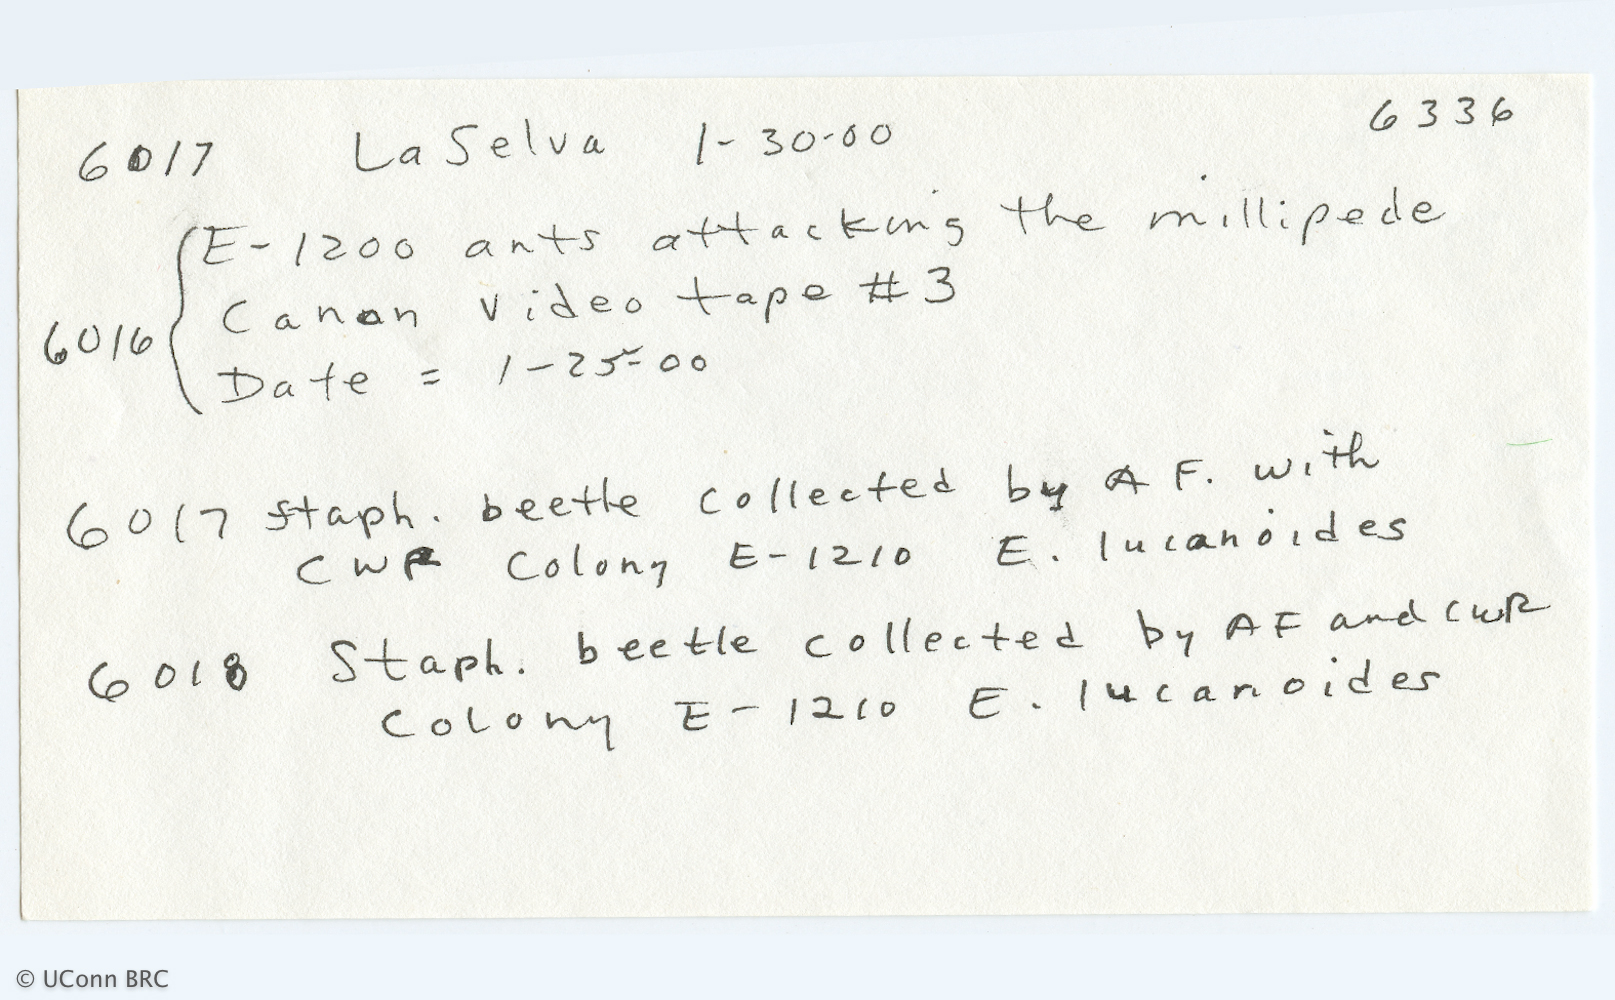 6336
6017 La Selva 1-30-00
E-1200 ants attacking the millipede
6016 Canon video tape #3
Date = 1-25-00
6017 Staph. beetle collected by A F. with
CWR Colony E-1210 E. lucanoides
6018 Staph. beetle collected by AF and CWR
Colony E-1210 E. lucanoides
© UConn BRC